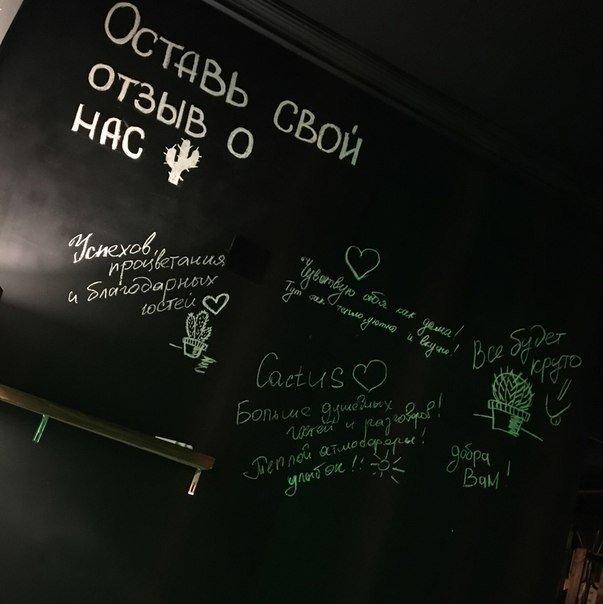 Оставь свой
отзыв о
нас
Успехов,
процветания
и благодарных
гостей
Чувствую себя как дома!
Тут так тепло, уютно и вкусно!
Все будет
круто
Cactus
Больше душевных
гостей и разговоров!
Теплой атмосферы!
улыбок!!
добра
Вам!